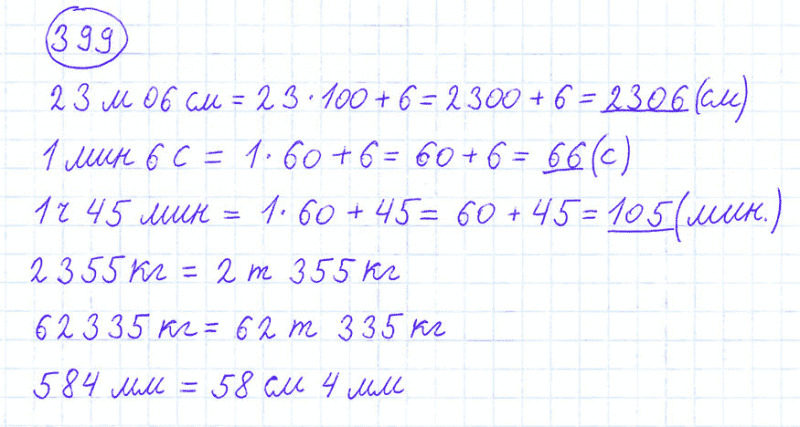 399
23 м 06 см = 23 · 100 + 6 = 2300 + 6 = 2306 (см)
1 мин 6 с = 1 · 60 + 6 = 60 + 6 = 66 (с)
1 ч 45 мин = 1 · 60 + 45 = 60 + 45 = 105 (мин.)
2355 кг = 2 т 355 кг
62335 кг = 62 т 335 кг
584 мм = 58 см 4 мм